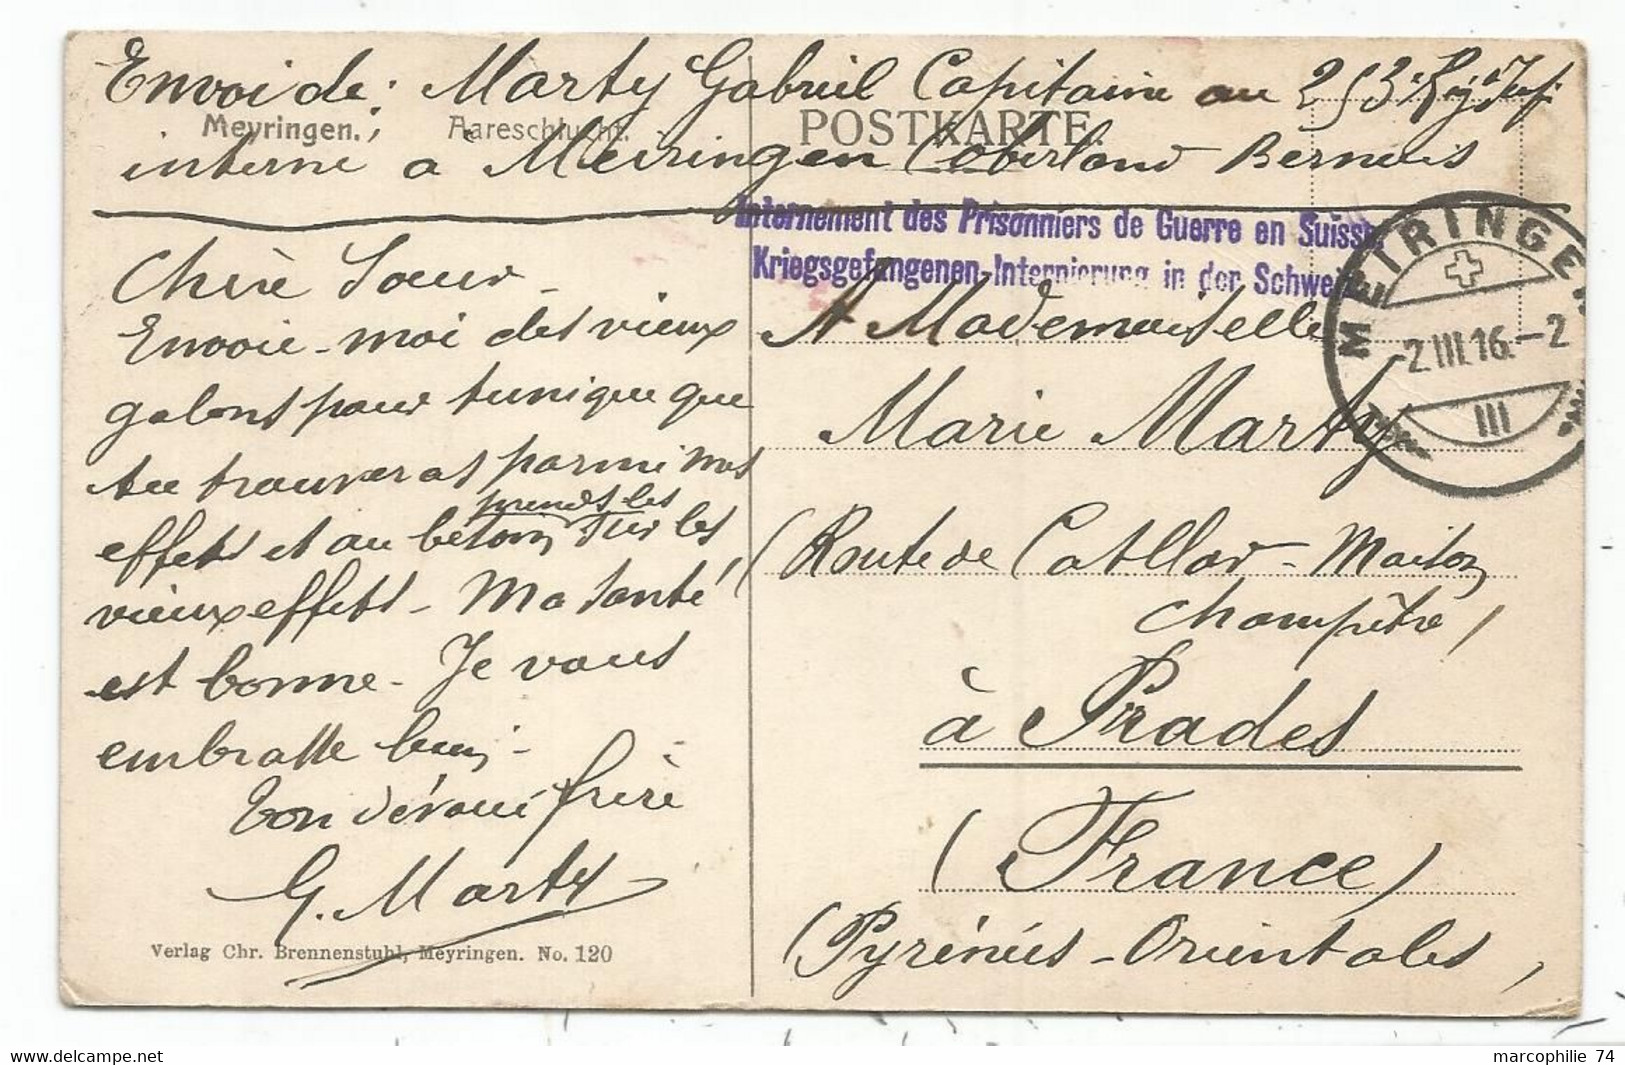 Envoi de : Marty Gabriel Capitaine au 253e Reg. d'Inf.
Meyringen. Aareschlucht. POSTKARTE.
interné à Meiringen (oberland Bernois
Internement des Prisonniers de Guerre en Suisse
Kriegsgefangenen-Internierung in der Schweiz
MEIRINGEN
-2.III.16.-2
III
Chère Soeur -
Envoie-moi des vieux
galons pour tunique que
tu trouveras parmi mes
effets et au besoin prends les sur les
vieux effets - Ma santé
est bonne - Je vous
embrasse bien -
Ton dévoué frère
G. Marty
Verlag Chr. Brennenstuhl, Meyringen. No. 120
A Mademoiselle
Marie Marty
(Route de Catllar - Maison
Champêtre)
à Prades
(France)
(Pyrénées-Orientales)
marcophilie 74